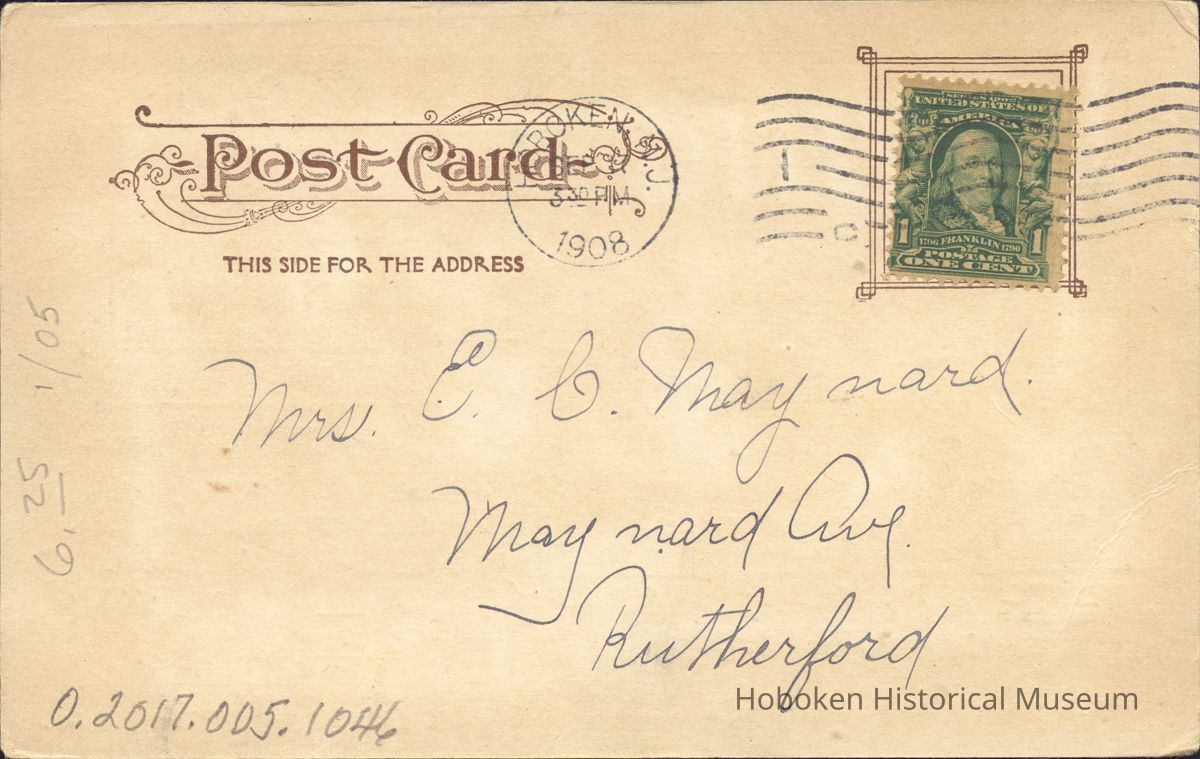 Post Card
THIS SIDE FOR THE ADDRESS
HOBOKEN, N.J.
3 30 PM
1908
SERIES 1902
UNITED STATES OF
AMERICA
1 1
1706 FRANKLIN 1790
POSTAGE
ONE CENT
Mrs. E. C. Maynard.
Maynard Ave.
Rutherford
1/05
6.25
O.2017.005.1046
Hoboken Historical Museum